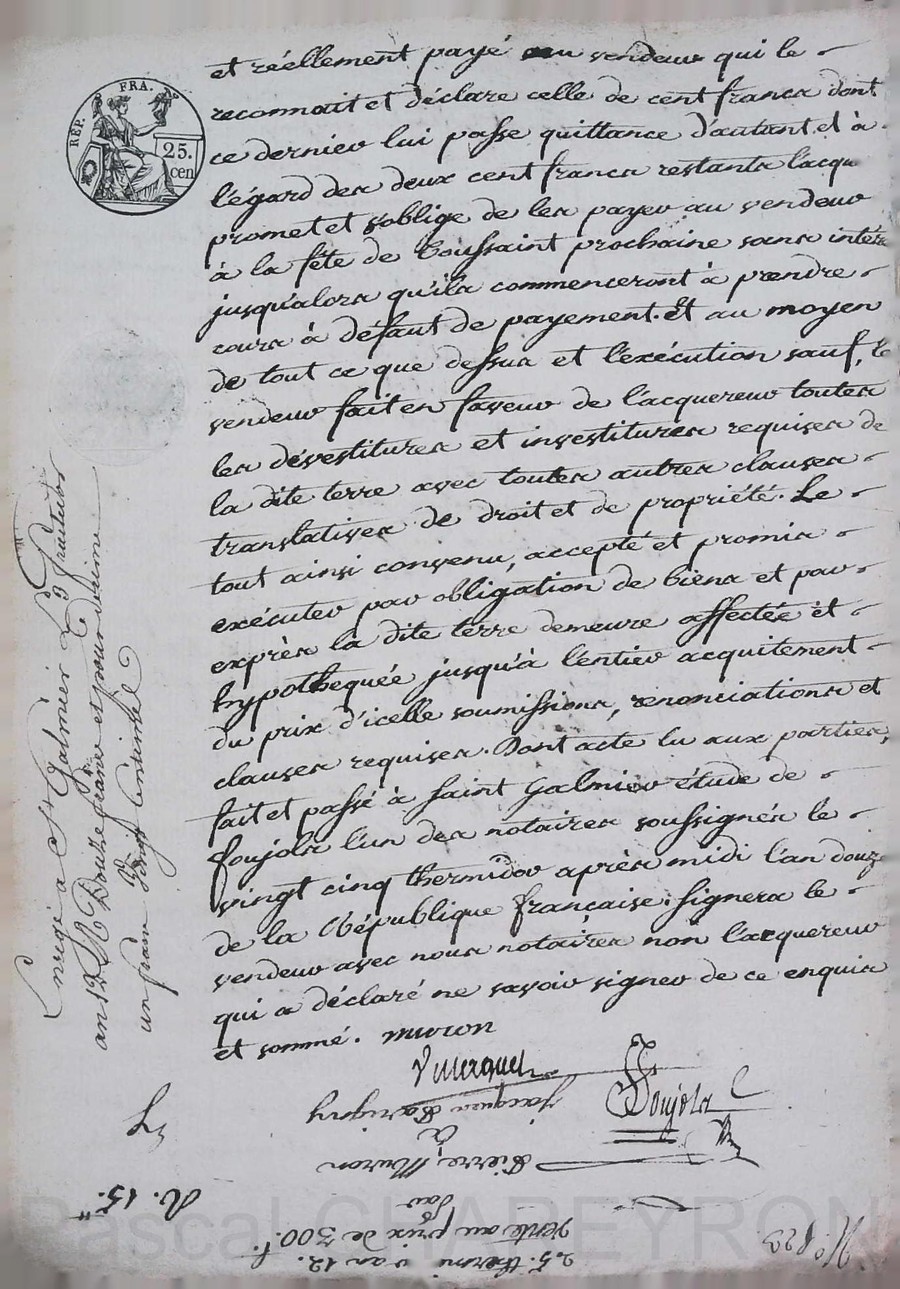 RÉP. FRA.
25.
cen
et réellement payé au vendeur qui le
reconnait et déclare celle de cent francs dont
ce dernier lui passe quittance d'autant et à
l'égard des deux cent francs restants l'acqu
promet et s'oblige de les payer au vendeur
à la fête de Toussaint prochaine sans intérê
jusqu'alors qu'ils commenceront à prendre
cours à défaut de payement. Et au moyen
de tout ce que dessus et l'exécution sauf, le
vendeur fait en faveur de l'acquereur toutes
les dévestitures et investitures requises de
la dite terre avec toutes autres clauses
translatives de droit et de propriété. Le
tout ainsi convenu, accepté et promis
exécuter par obligation de biens et par
exprès la dite terre demeure affectée et
hypothequée jusqu'à l'entier acquitement
du prix d'icelle soumissions, renonciations et
clauses requises. Dont acte lu aux parties,
fait et passé à Saint Galmier étude de
Foujols l'un des notaires soussignés le
vingt cinq thermidor après midi l'an douze
de la République française. Signera le
vendeur avec nous notaires non l'acquereur
qui a déclaré ne savoir signer de ce enquis
et sommé. Muron
Foujols
an 12
un franc vingt centimes
25. thermi r an 12.
vente au prix de 300. f.
Par
Pierre Muron
à
Jacques
N. 15.
Pascal CHAPEYRON